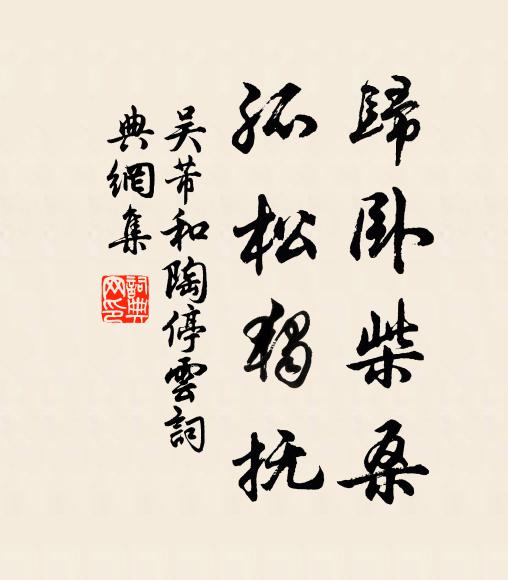 歸卧柴桑
孤松獨抚
吴芾和陶停雲詞
典網集
詞典
网印